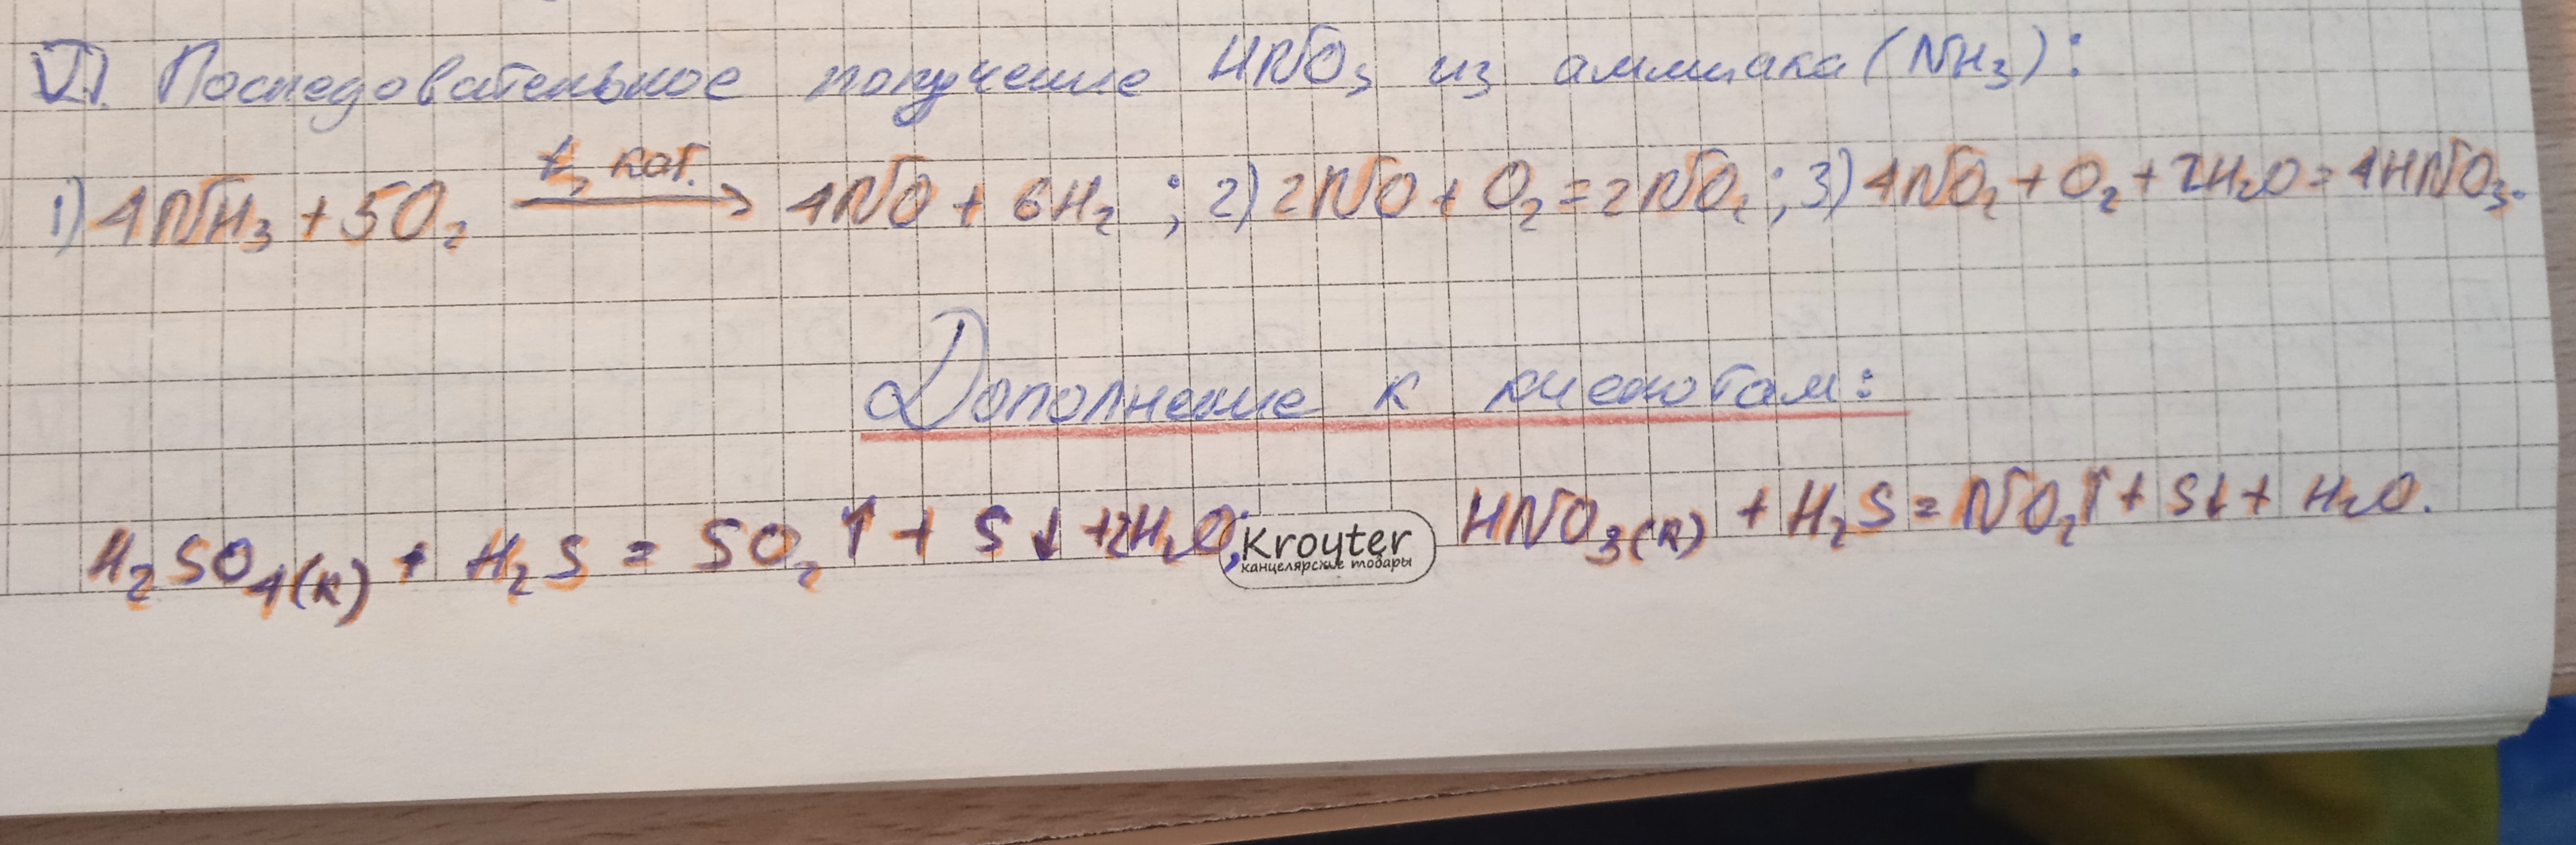 VI. Последовательное получение HNO₃ из аммиака (NH₃):
1) 4NH₃ + 5O₂ t, кат. → 4NO + 6H₂ ; 2) 2NO + O₂ = 2NO₂ ; 3) 4NO₂ + O₂ + 2H₂O = 4HNO₃.
Дополнение к кислотам:
H₂SO₄(к) + H₂S = SO₂↑ + S↓ + 2H₂O; HNO₃(к) + H₂S = NO₂↑ + S↓ + H₂O.
Kroyter
канцелярские товары